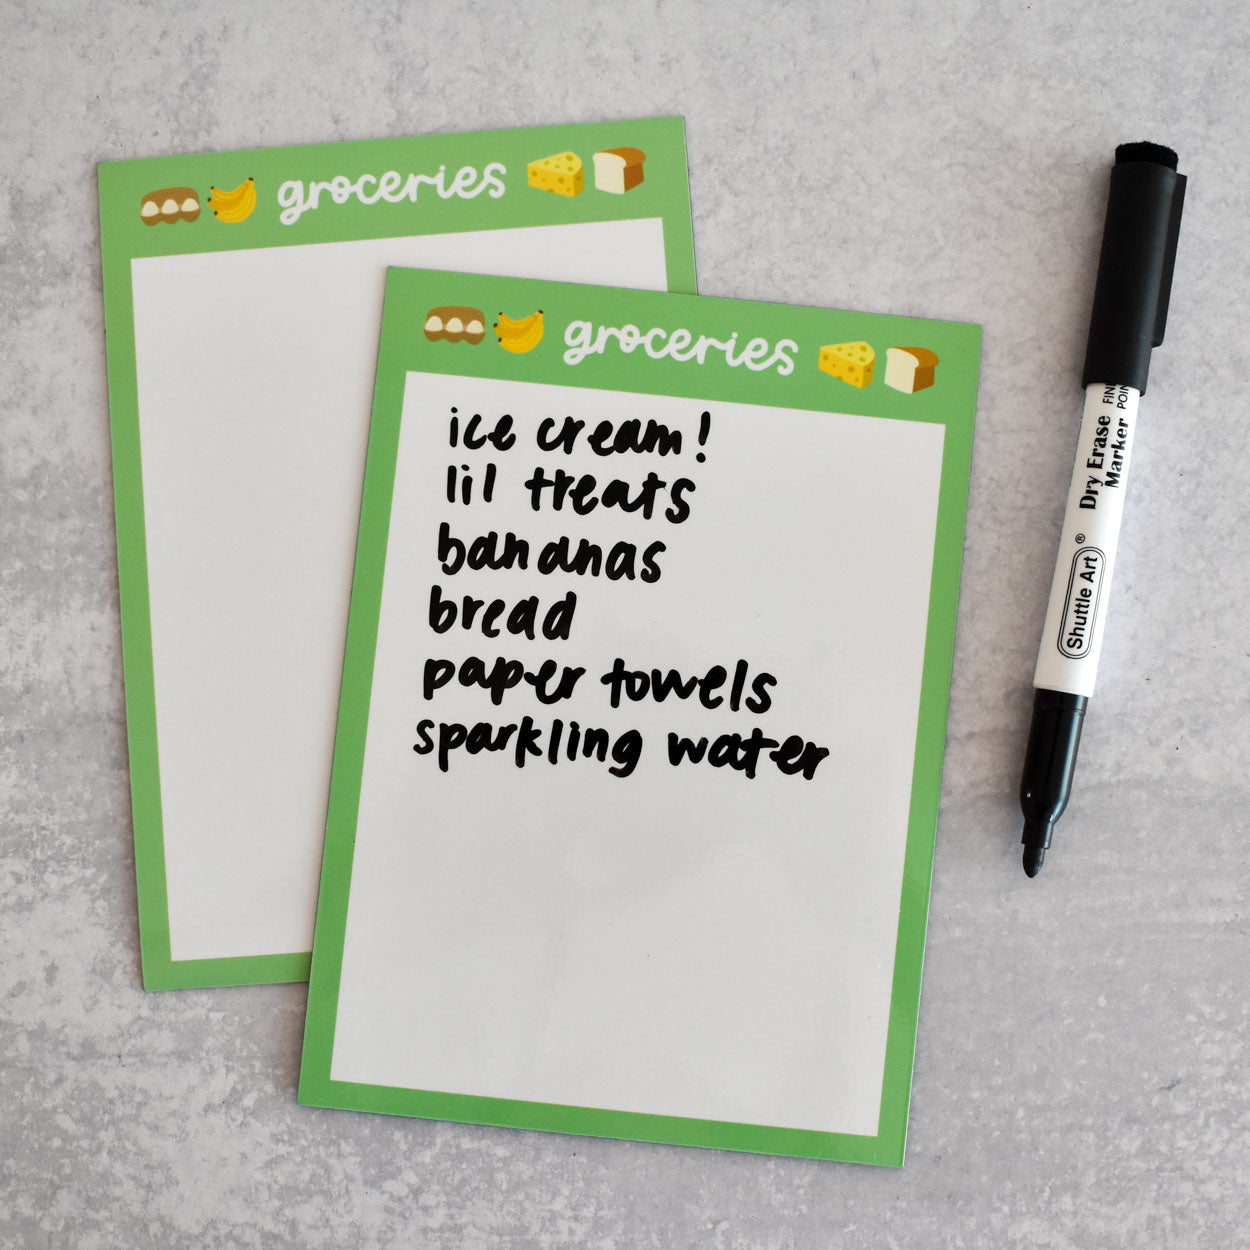 groceries
groceries
ice cream!
lil treats
bananas
bread
paper towels
sparkling water
Dry Erase
Marker
FIN
POIN
Shuttle Art
®